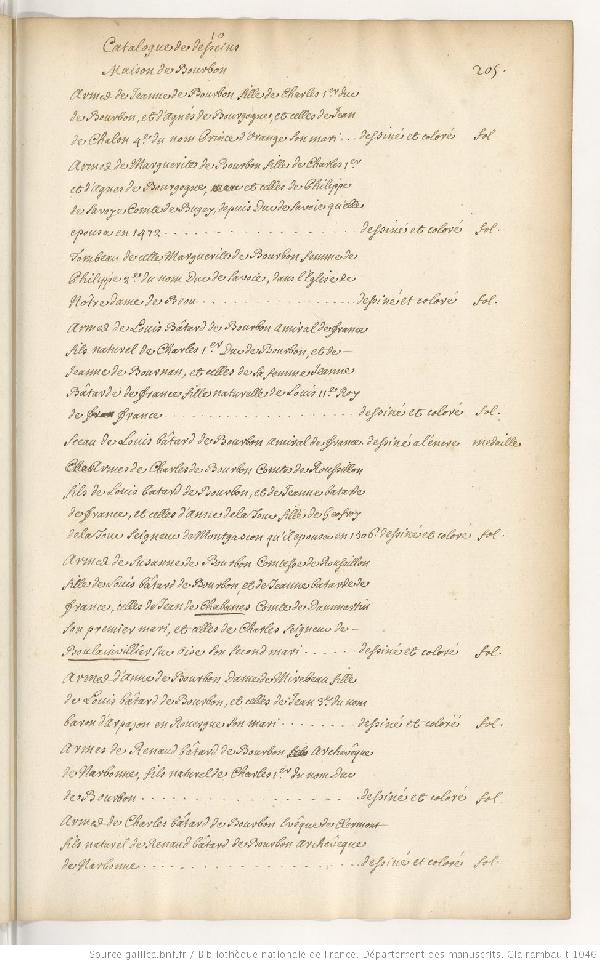 10
Catalogue de desseins
Maison de Bourbon
205.
Armes de Jeanne de Bourbon fille de Charles 1er duc
de Bourbon, et d'Agnés de Bourgogne, et celles de Jean
de Chalon 4e du nom Prince d'Orange son mari... dessiné et coloré fol
Armes de Marguerite de Bourbon fille de Charles 1er
et d'Agnes de Bourgogne, et celles de Philippe
de Savoye Comte de Bugey, depuis Duc de Savoie qu'elle
epousa en 1472............ dessiné et coloré fol.
Tombeau de cette Marguerite de Bourbon femme de
Philippe 2e du nom Duc de Savoie, dans l'Eglise de
Notre dame de Brou............ dessiné et coloré fol.
Armes de Louis Bâtard de Bourbon amiral de france
fils naturel de Charles 1er Duc de Bourbon, et de
Jeanne de Bournan, et celles de sa femme Jeanne
Bâtarde de france, fille naturelle de Louis 11e Roy
de france............ dessiné et coloré fol.
Sceau de Louis bâtard de Bourbon amiral de france dessiné a l'encre medaille
Armes de Charles de Bourbon Comte de Roussillon
fils de Louis batard de Bourbon, et de Jeanne batarde
de france, et celles d'Anne de la Tour fille de Geofroy
de la Tour Seigneur de Montgascon qu'il epousa en 1506. dessiné et coloré fol.
Armes de Susanne de Bourbon Comtesse de Roussillon
fille de Louis bâtard de Bourbon, et de Jeanne batarde de
france, celles de Jean de Chabanes Comte de Dammartin
son premier mari, et celles de Charles Seigneur de
Boulainvillier son second mari...... dessiné et coloré fol.
Armes d'Anne de Bourbon Dame de Mirebeau fille
de Louis bâtard de Bourbon, et celles de Jean 3e du nom
baron d'Arpajon en Rouergue son mari....... dessiné et coloré fol.
Armes de Renaud bâtard de Bourbon Archevêque
de Narbonne, fils naturel de Charles 1er du nom Duc
de Bourbon............ dessiné et coloré fol.
Armes de Charles bâtard de Bourbon Evêque de Clermont
fils naturel de Renaud bâtard de Bourbon Archevêque
de Narbonne............ dessiné et coloré fol.
Source gallica.bnf.fr / Bibliothèque nationale de France. Département des manuscrits. Clairambault 1046